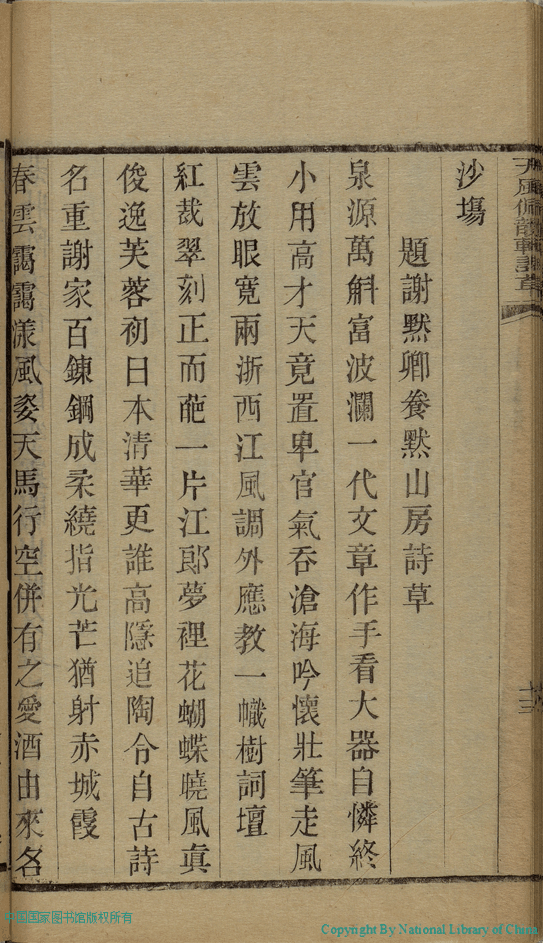 沙場
題謝黙卿養黙山房詩草
泉源萬斛富波瀾一代文章作手看大器自憐終
小用高才天竟置卑官氣吞滄海吟懷壯筆走風
雲放眼寬兩浙西江風調外應教一幟樹詞壇
紅裁翠刻正而葩一片江郎夢裡花蝴蝶曉風真
俊逸芙蓉初日本清華更誰高隱追陶令自古詩
名重謝家百鍊鋼成柔繞指光芒猶射赤城霞
春雲靄靄漾風姿天馬行空併有之愛酒由來名
中国国家图书馆版权所有
Copyright By National Library of China